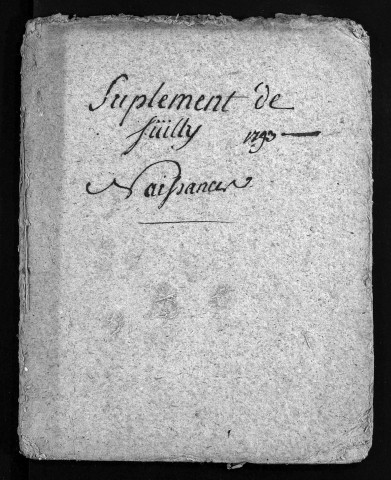 Suplement de
süilly 1793
Naissances